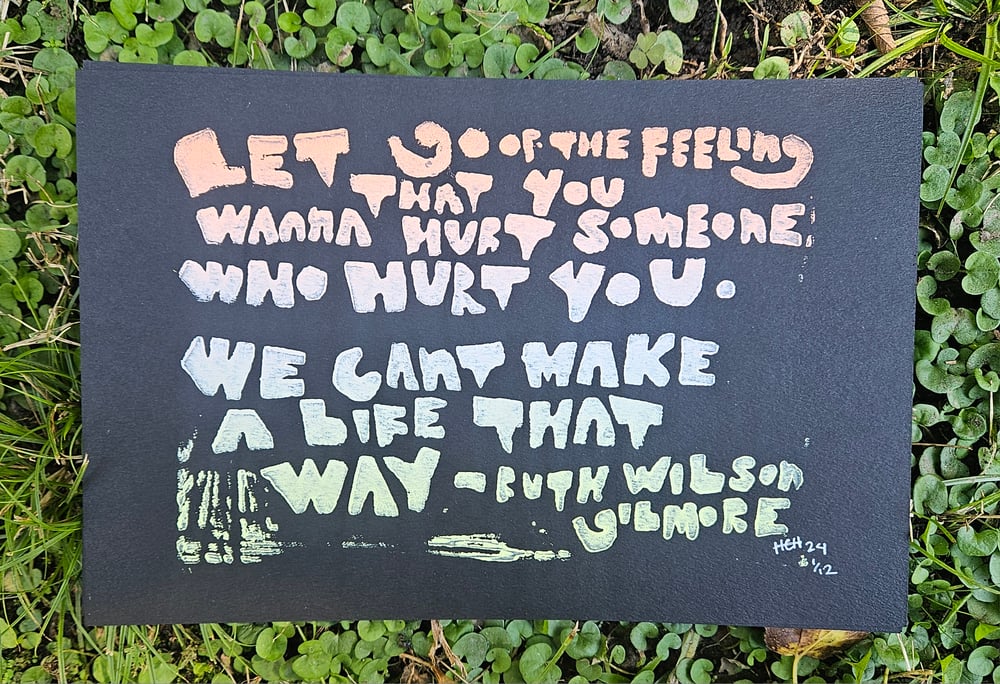 LET go OF THE FEELing
THAT YOU
WAnnA HURT SOMEONE,
WHO HURT YOU.
WE CAnT MAKE
A LIFE THAT
WAY - RUTH WILSOn
gILMORE
HCH 24
1/12